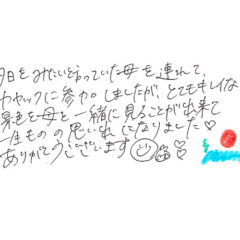 夕日をみたいと言っていた母を連れて、
カヤックに参加しましたが、とてもキレイな
景色を母と一緒に見ることが出来て
一生ものの思い出になりました♡
ありがとうございます